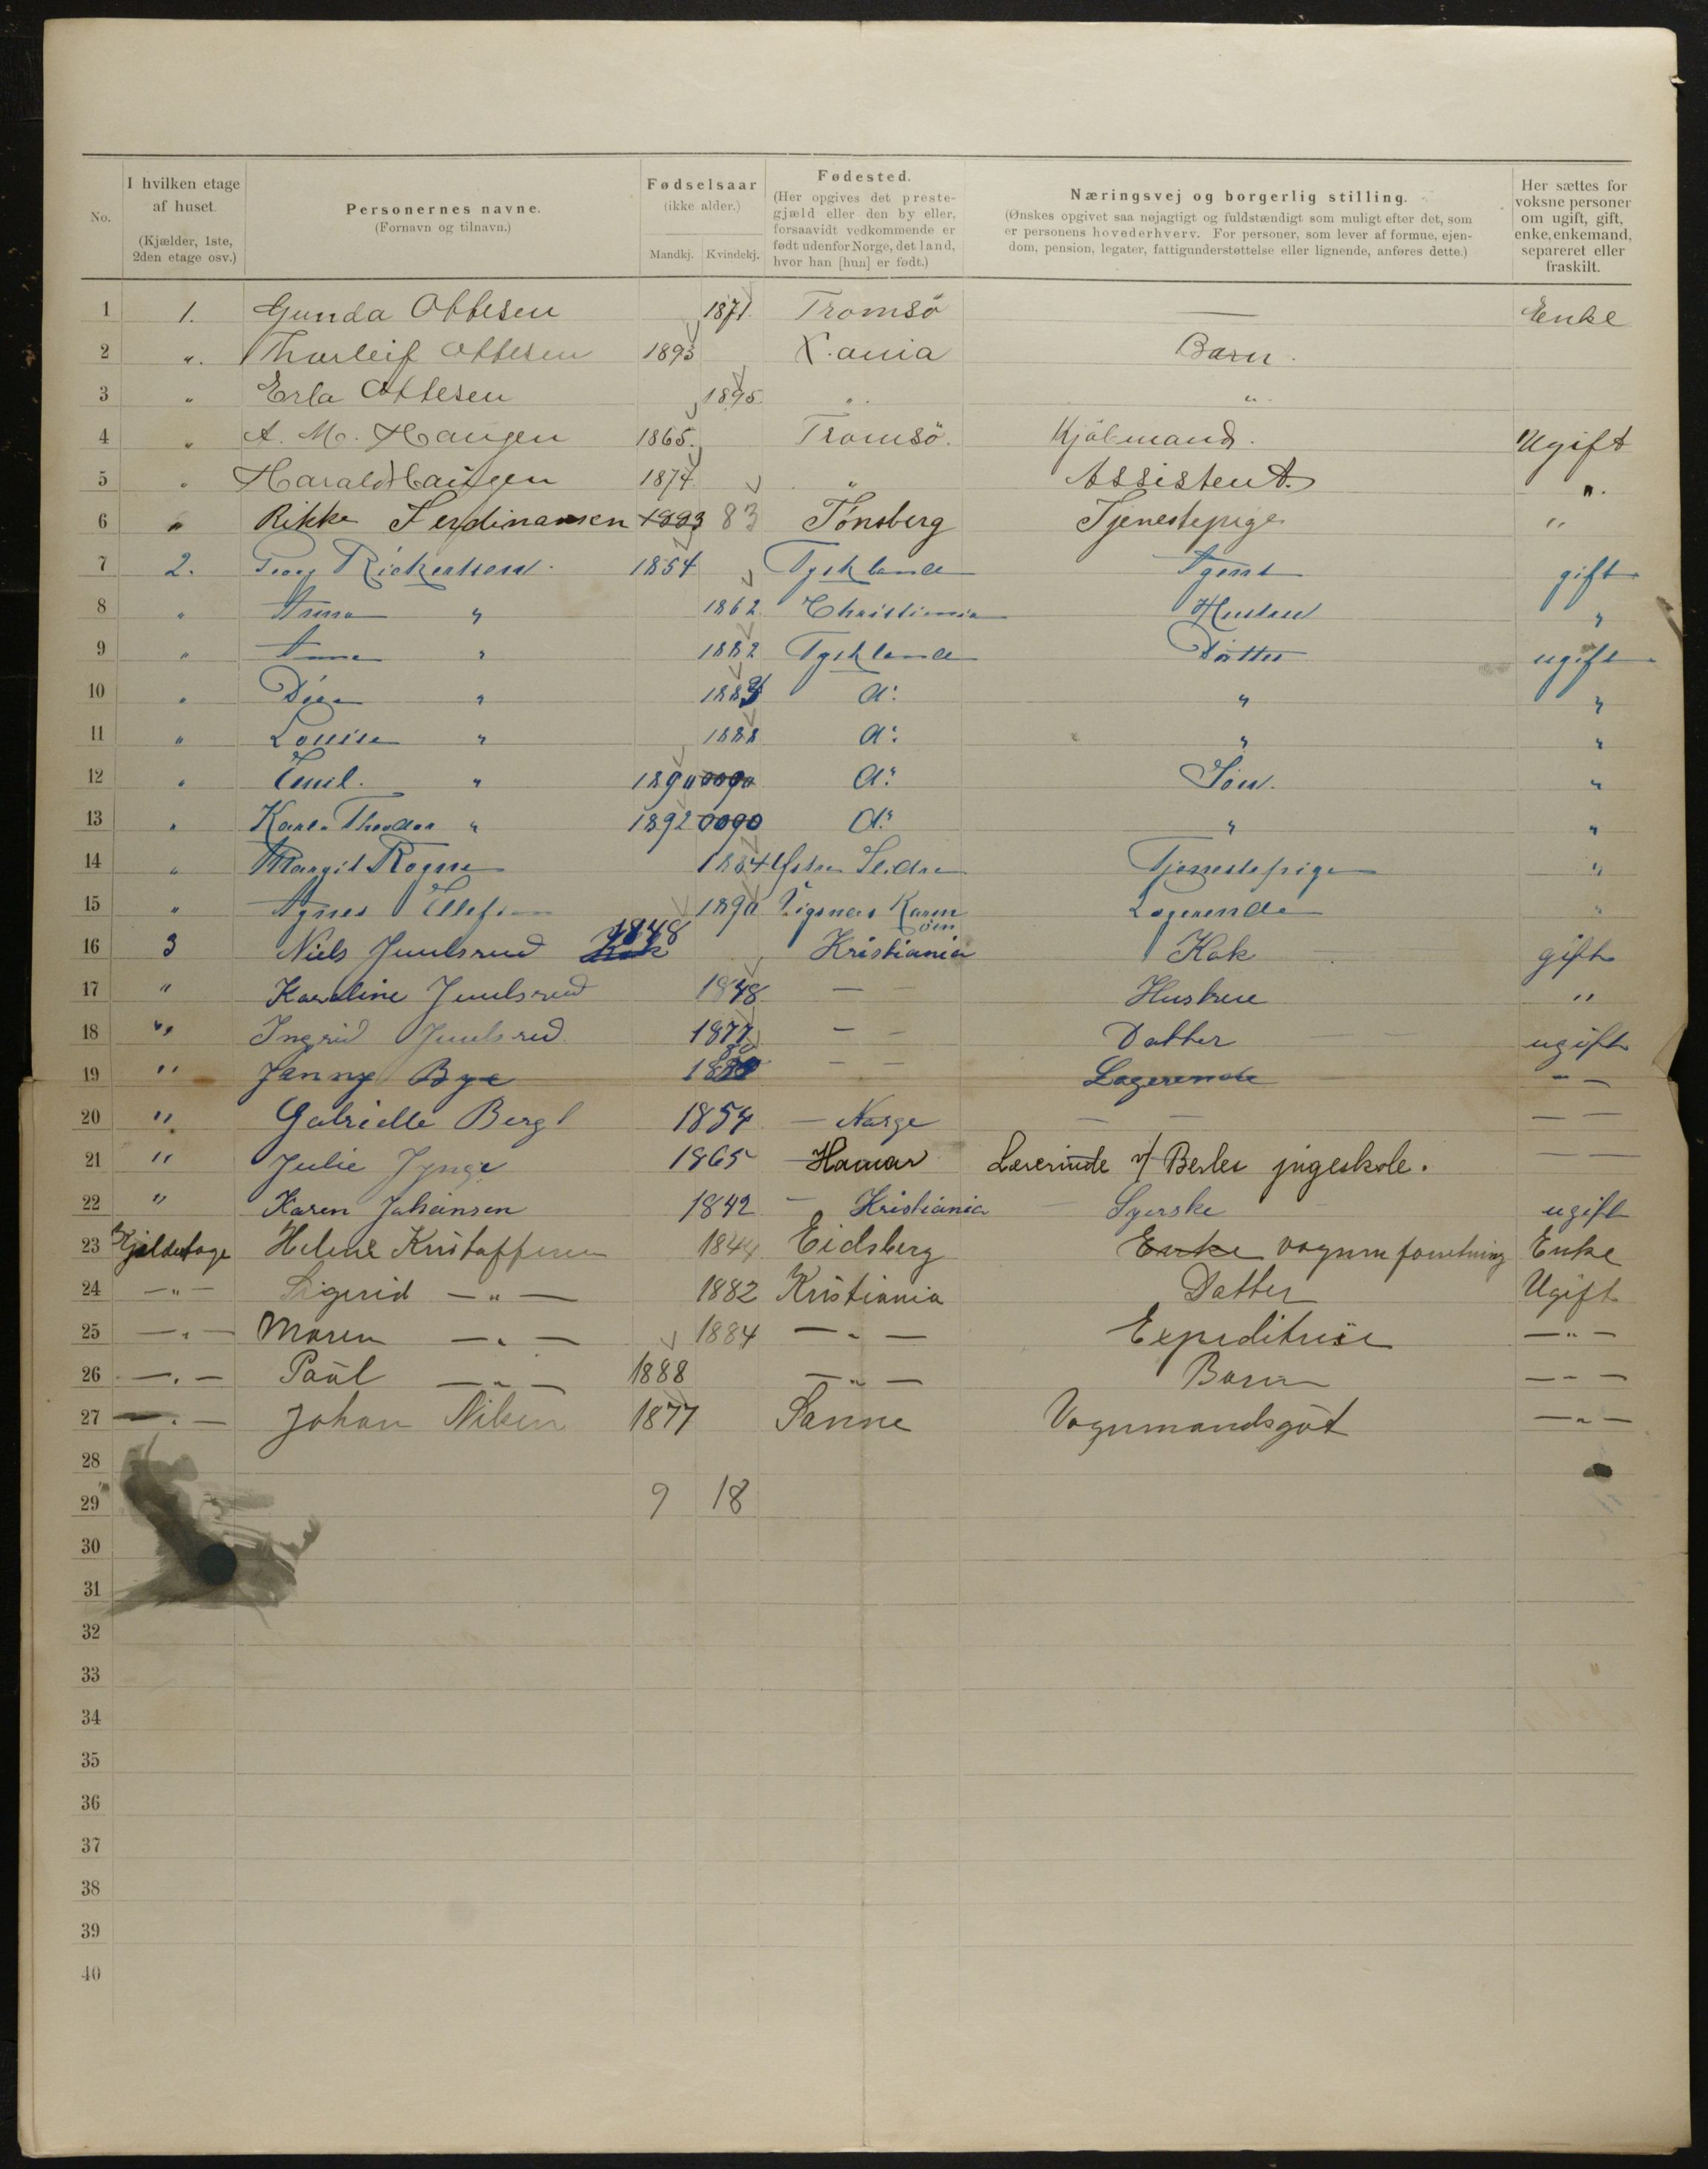 No.
I hvilken etage af huset.
(Kjælder, 1ste, 2den etage osv.)
Personernes navne.
(Fornavn og tilnavn.)
Fødselsaar
(ikke alder.)
Mandkj. Kvindekj.
Fødested.
(Her opgives det prestegjæld eller den by eller, forsaavidt vedkommende er født udenfor Norge, det land, hvor han [hun] er født.)
Næringsvej og borgerlig stilling.
(Ønskes opgivet saa nøjagtigt og fuldstændigt som muligt efter det, som er personens hovederhverv. For personer, som lever af formue, ejendom, pension, legater, fattigunderstøttelse eller lignende, anføres dette.)
Her sættes for voksne personer om ugift, gift, enke, enkemand, separeret eller fraskilt.
1 1. Gunda Ottesen 1871. Tromsö — Enke
2 ". Thorleif Ottesen 1893 X.ania Barn.
3 " Erla Ottesen 1895. " "
4 " A. M. Haugen 1865. Tromsö. Kjöbmand. Ugift
5 " Harald Haugen 1874. " Assistent. ".
6 " Rikke Ferdinansen 1883 83 Tønsberg Tjenestepige "
7 2. Georg Rickertsen. 1854 Tyskland Agent gift
8 " Anna " 1862 Christiania Hustru "
9 " Anna " 1882 Tyskland Datter ugift
10 " " d: " "
11 " Louise " 1888 d: " "
12 " Emil. " 1890 d: Sön. "
13 " Karl Theodor " 1892 d: " "
14 " Margit Rogne 1884 Østre Slidre Tjenestepige "
15 " Agnes Ellefsen 1890 Vigsnes Karmöen Logerende "
16 3 Niels Juulsrud 1848 Kristiania Kok gift
17 " Karoline Juulsrud 1848 — — Hustrue "
18 " Ingrid Juulsrud 1877 — — Datter ugift
19 " Jenny Bye 80 — — Logerende — —
20 " Gabrielle Berg 1854 — Norge — — — —
21 " Julie Jynge 1865 — Hamar Lærerinde v/ Berles pigeskole. — —
22 " Karen Johansen 1842 — Kristiania Syerske ugift
23 Kjelderetage Helene Kristoffersen 1844 Eidsberg Enke vognm forretning Enke
24 —"— Sigrid —"— 1882 Kristiania Datter Ugift
25 —"— Maren —"— 1884 —"— Expeditrise —"—
26 —"— Paul —"— 1888 —"— Barn —"—
27 —"— Johan Nilsen 1877 Sanne Vognmandsgut —"—
28
29 9 18
30
31
32
33
34
35
36
37
38
39
40